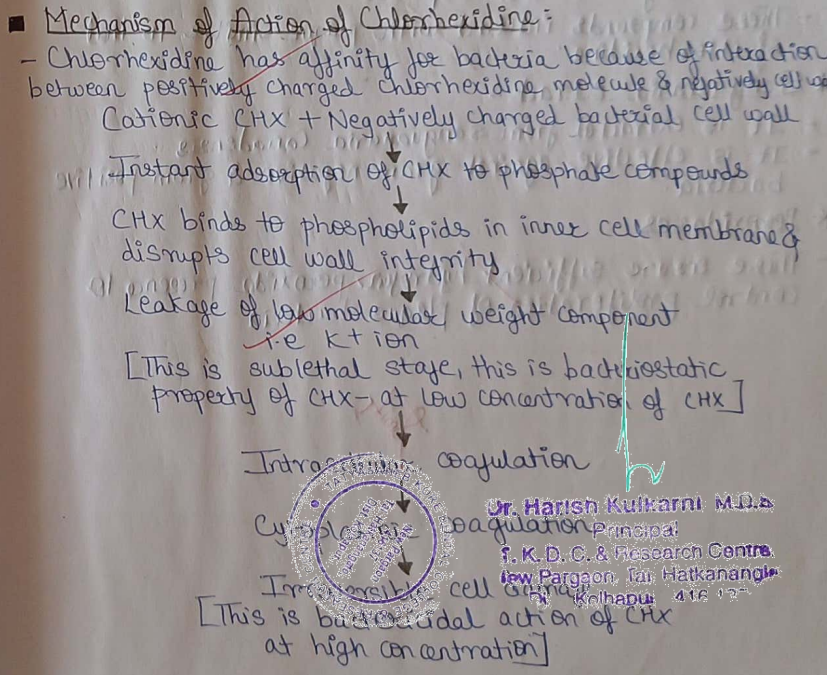 ■ Mechanism of Action of Chlorhexidine:
- Chlorhexidine has affinity for bacteria because of interaction
between positively charged chlorhexidine molecule & negatively cell
Cationic CHX + Negatively charged bacterial cell wall
↓
Instant adsorption of CHX to phosphate compounds
↓
CHX binds to phospholipids in inner cell membrane &
disrupts cell wall integrity
↓
Leakage of low molecular weight component
i.e K+ ion
[This is sublethal stage, this is bacteriostatic
property of CHX - at low concentration of CHX]
↓
coagulation
↓
Cytoplasmic coagulation
↓
Irreversible cell
[This is bactericidal action of CHX
at high concentration]
Dr. Harish Kulkarni M.D.S
Principal
T. K. D. C. & Research Centre,
New Pargaon, Tal Hatkanangle
Kolhapur 416